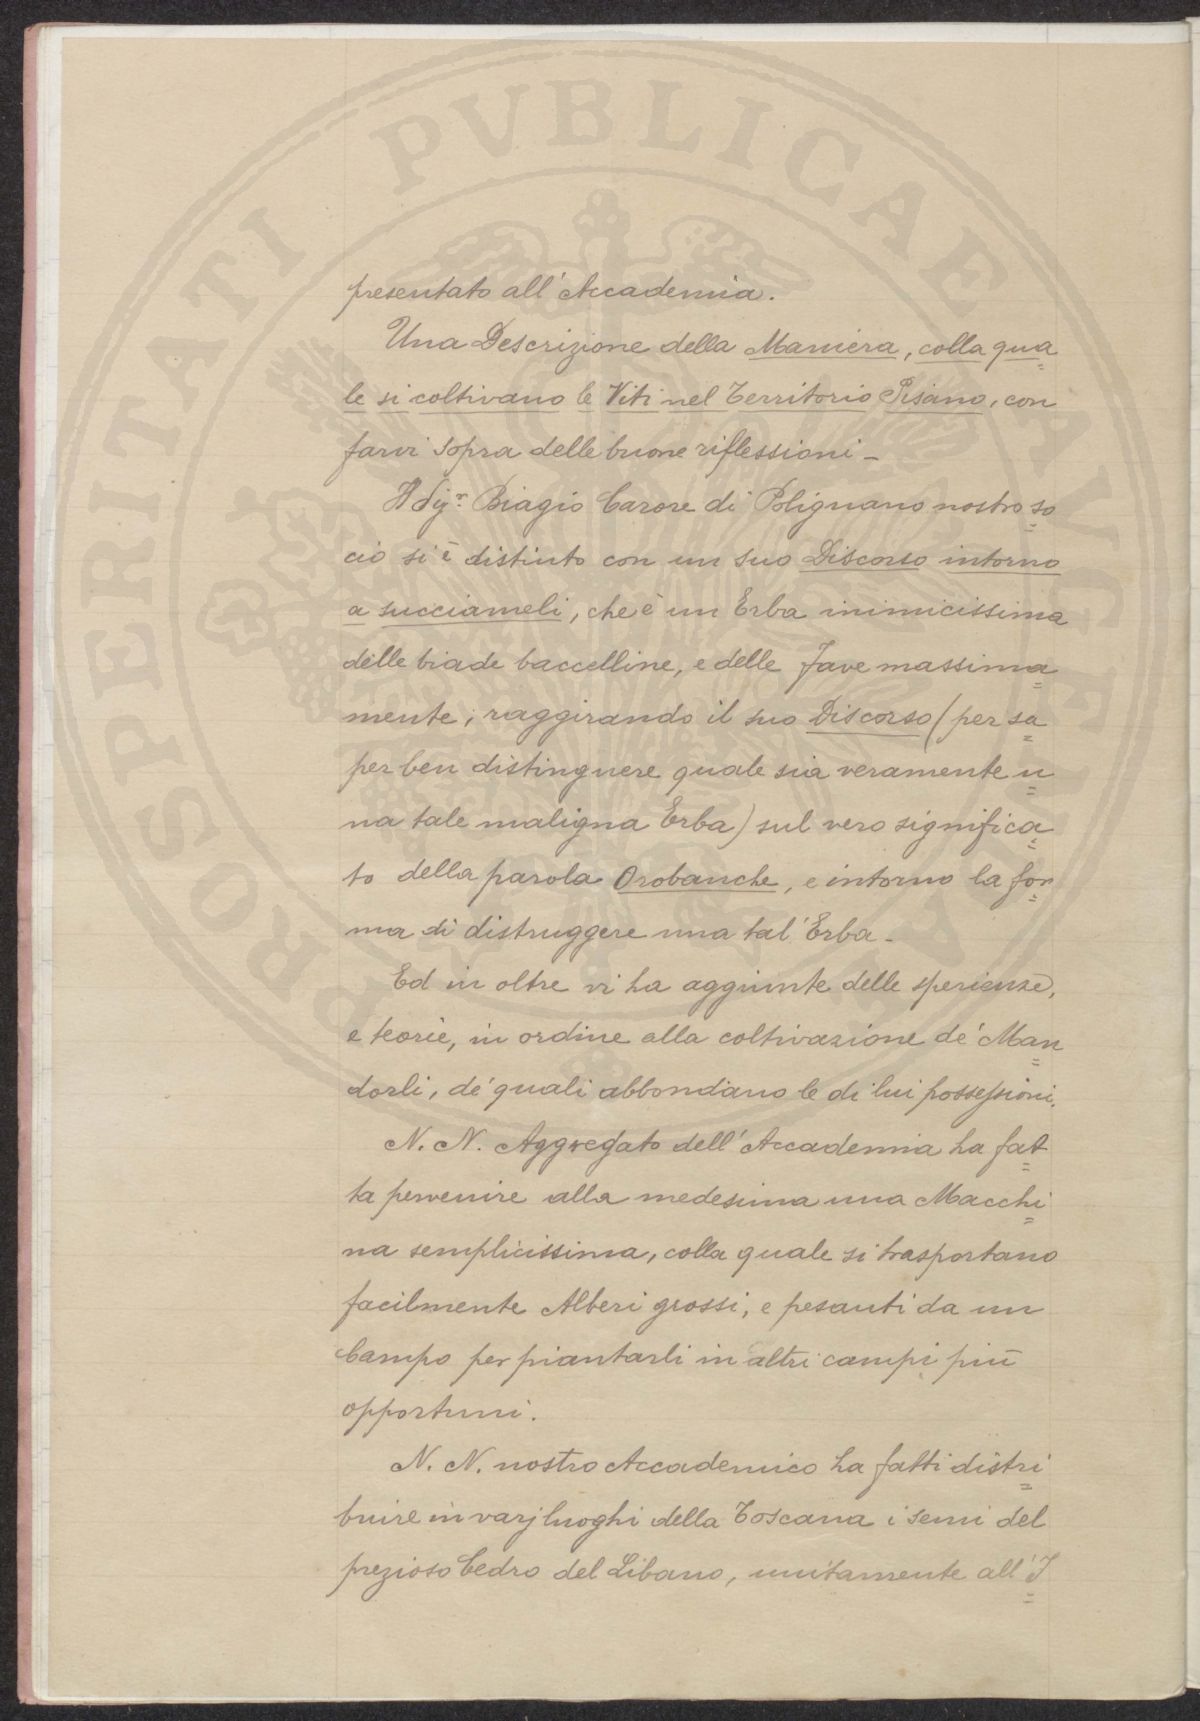 PROSPERITATI PVBLICAE AVGENDAE
presentato all'Accademia.
Una Descrizione della Maniera, colla qua=
le si coltivano le Viti nel Territorio Pisano, con
farvi sopra delle buone riflessioni -
Il Sigr. Biagio Carore di Polignano nostro so=
cio si è distinto con un suo Discorso intorno
a succiameli, che è un Erba inimicissima
delle biade baccelline, e delle fave massima=
mente; raggirando il suo Discorso (per sa=
per ben distinguere quale sia veramente u=
na tale maligna Erba) sul vero significa=
to della parola Orobanche, e intorno la for=
ma di distruggere una tal'Erba -
Ed in oltre vi ha aggiunte delle sperienze,
e teorie, in ordine alla coltivazione de' Man=
dorli, de' quali abbondano le di lui possessioni.
N. N. Aggregato dell'Accademia ha fat=
ta pervenire alla medesima una Macchi=
na semplicissima, colla quale si trasportano
facilmente Alberi grossi, e pesanti da un
Campo per piantarli in altri campi più
opportuni.
N. N. nostro Accademico ha fatti distri=
buire in varj luoghi della Toscana i semi del
prezioso Cedro del Libano, unitamente all'I=